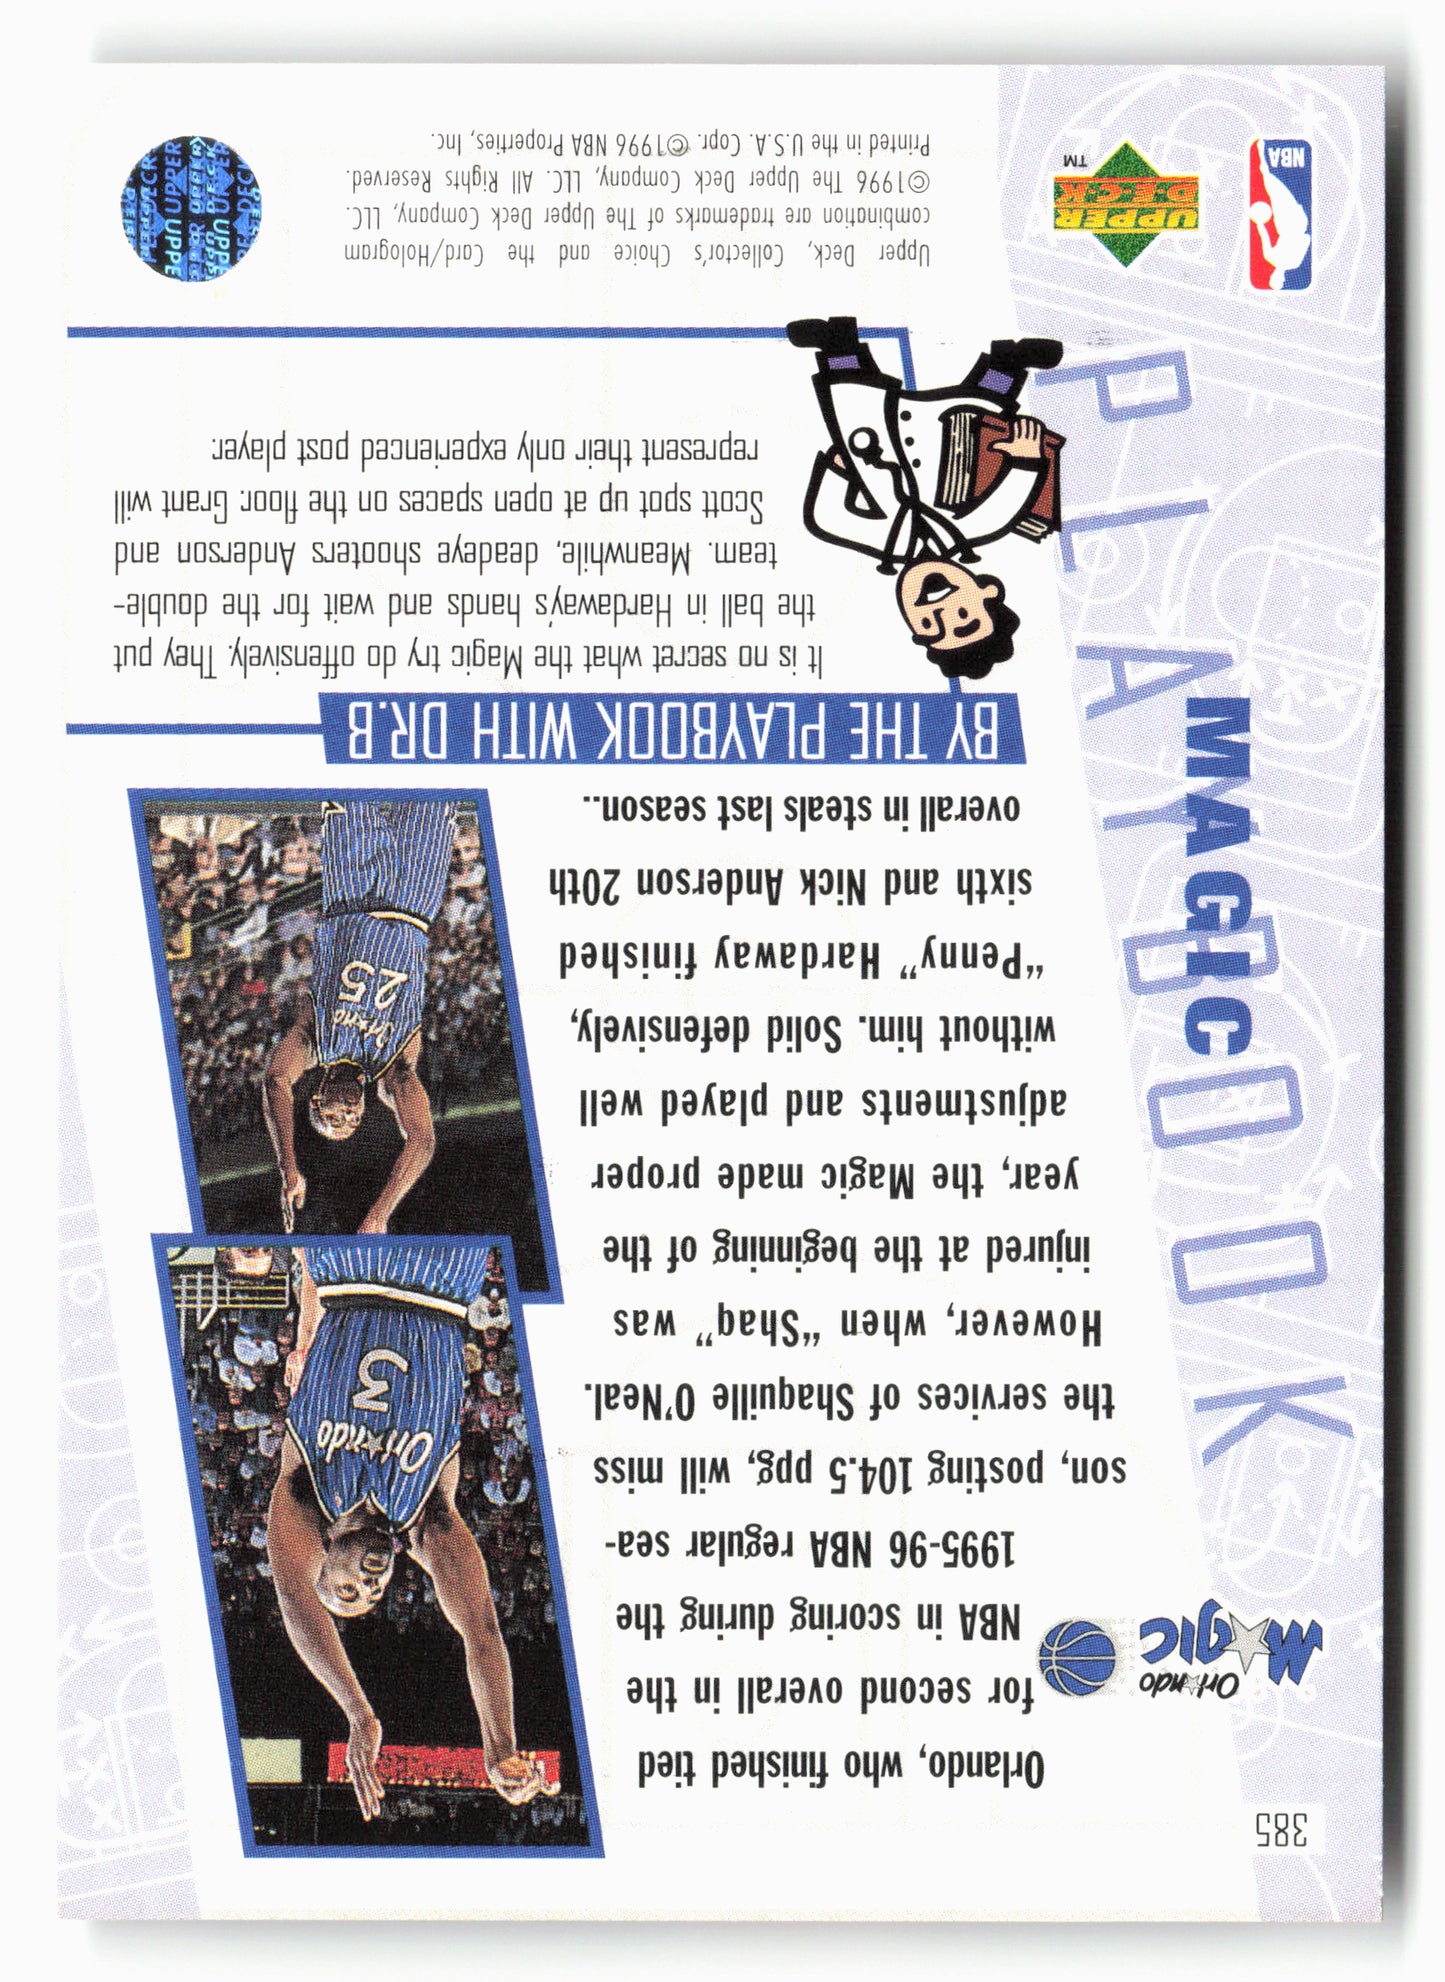 385
Orlando Magic
MAGIC
PLAYBOOK
Orlando, who finished tied
for second overall in the
NBA in scoring during the
1995-96 NBA regular sea-
son, posting 104.5 ppg, will miss
the services of Shaquille O'Neal.
However, when "Shaq" was
injured at the beginning of the
year, the Magic made proper
adjustments and played well
without him. Solid defensively,
"Penny" Hardaway finished
sixth and Nick Anderson 20th
overall in steals last season..
Orlando
3
Orlando
25
BY THE PLAYBOOK WITH DR.B
It is no secret what the Magic try do offensively. They put
the ball in Hardaway's hands and wait for the double-
team. Meanwhile, deadeye shooters Anderson and
Scott spot up at open spaces on the floor. Grant will
represent their only experienced post player.
NBA
UPPER
DECK
TM
Upper Deck, Collector's Choice and the Card/Hologram
combination are trademarks of The Upper Deck Company, LLC.
©1996 The Upper Deck Company, LLC. All Rights Reserved.
Printed in the U.S.A. Copr. ©1996 NBA Properties, Inc.
UPPER DECK